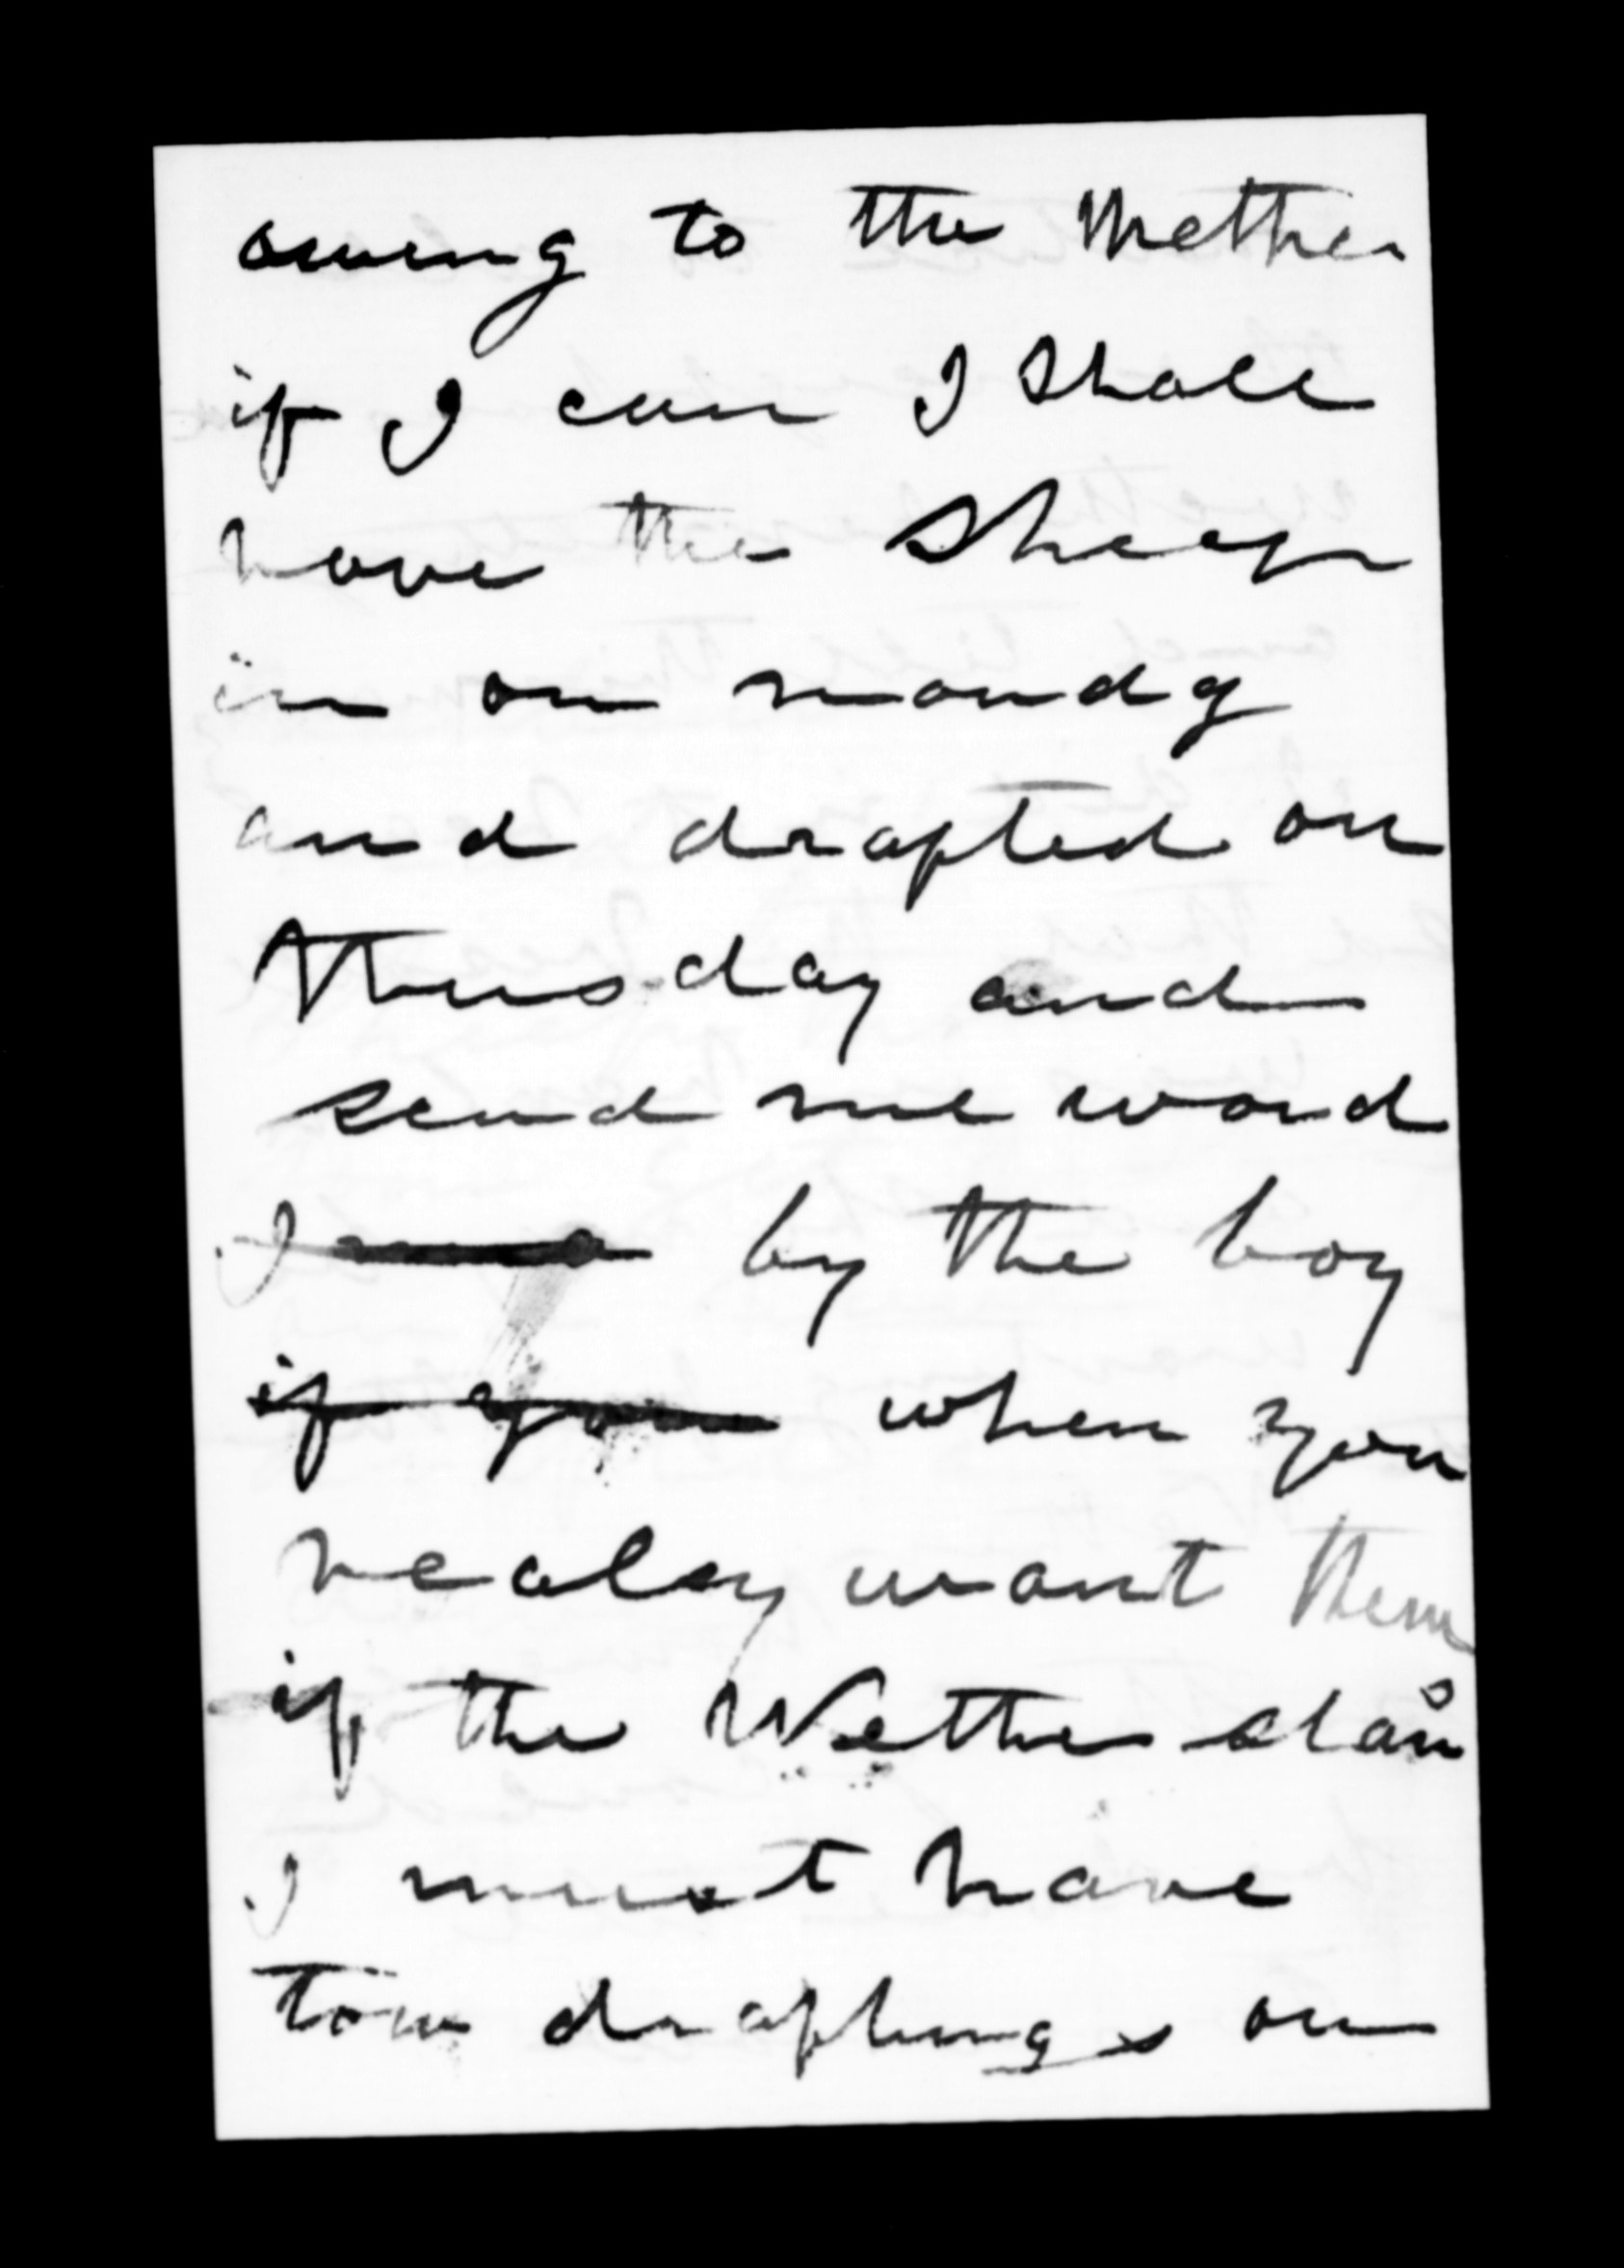 owing to the Wether
if I can I Shall
have the Sheep
in on mondy
and drafted on
Thusday and
send me word
I by the boy
if you when you
realey want them
if the Wether
I must have
tow draftings on